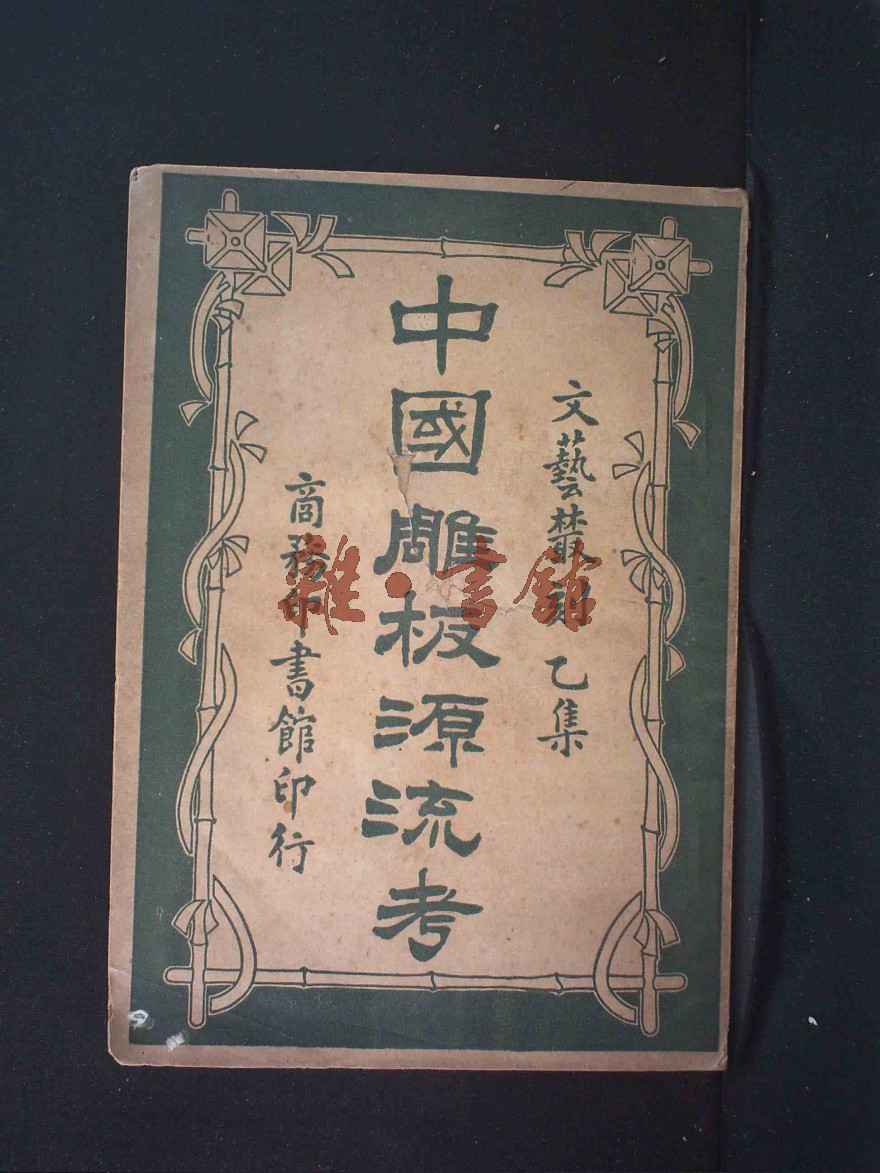 文藝叢刻 乙集
中國雕板源流考
商務印書館印行
雜·書館